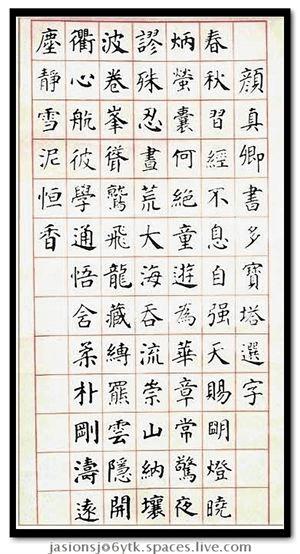 顏真卿書多寶塔選字
春秋習經不息自强天賜明燈曉
炳螢囊何絕童遊為華章常驚夜
謬殊忍晝荒大海吞流崇山納壤
波卷峯聳鷲飛龍藏縛羆雲隱開
衢心航彼學通悟舍柔朴剛濤遠
塵靜雪泥恒香
jasionsj06ytk.spaces.live.com